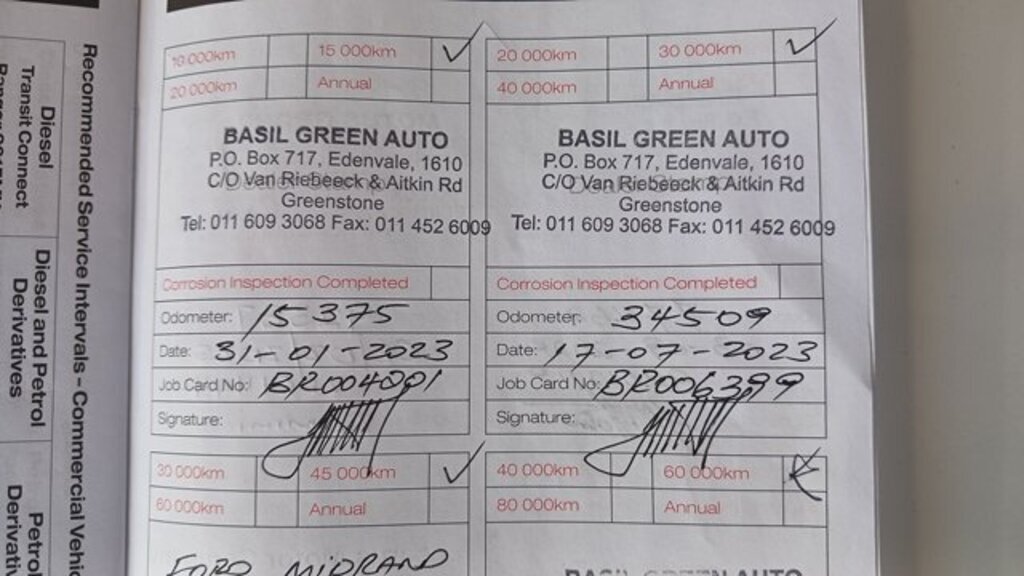 Recommended Service Intervals - Commercial Vehic
Diesel
Transit Connect
Diesel and Petrol
Derivatives
Petrol
10 000km
15 000km ✓
20 000km
Annual
BASIL GREEN AUTO
P.O. Box 717, Edenvale, 1610
C/O Van Riebeeck & Aitkin Rd
Greenstone
Tel: 011 609 3068 Fax: 011 452 6009
Corrosion Inspection Completed
Odometer: 15375
Date: 31-01-2023
Job Card No:
Signature:
30 000km
45 000km ✓
60 000km
Annual
FORD MIDRAND
20 000km
30 000km ✓
40 000km
Annual
BASIL GREEN AUTO
P.O. Box 717, Edenvale, 1610
C/O Van Riebeeck & Aitkin Rd
Greenstone
Tel: 011 609 3068 Fax: 011 452 6009
Corrosion Inspection Completed
Odometer: 34509
Date: 17-07-2023
Job Card No: BR006399
Signature:
40 000km
60 000km
80 000km
Annual